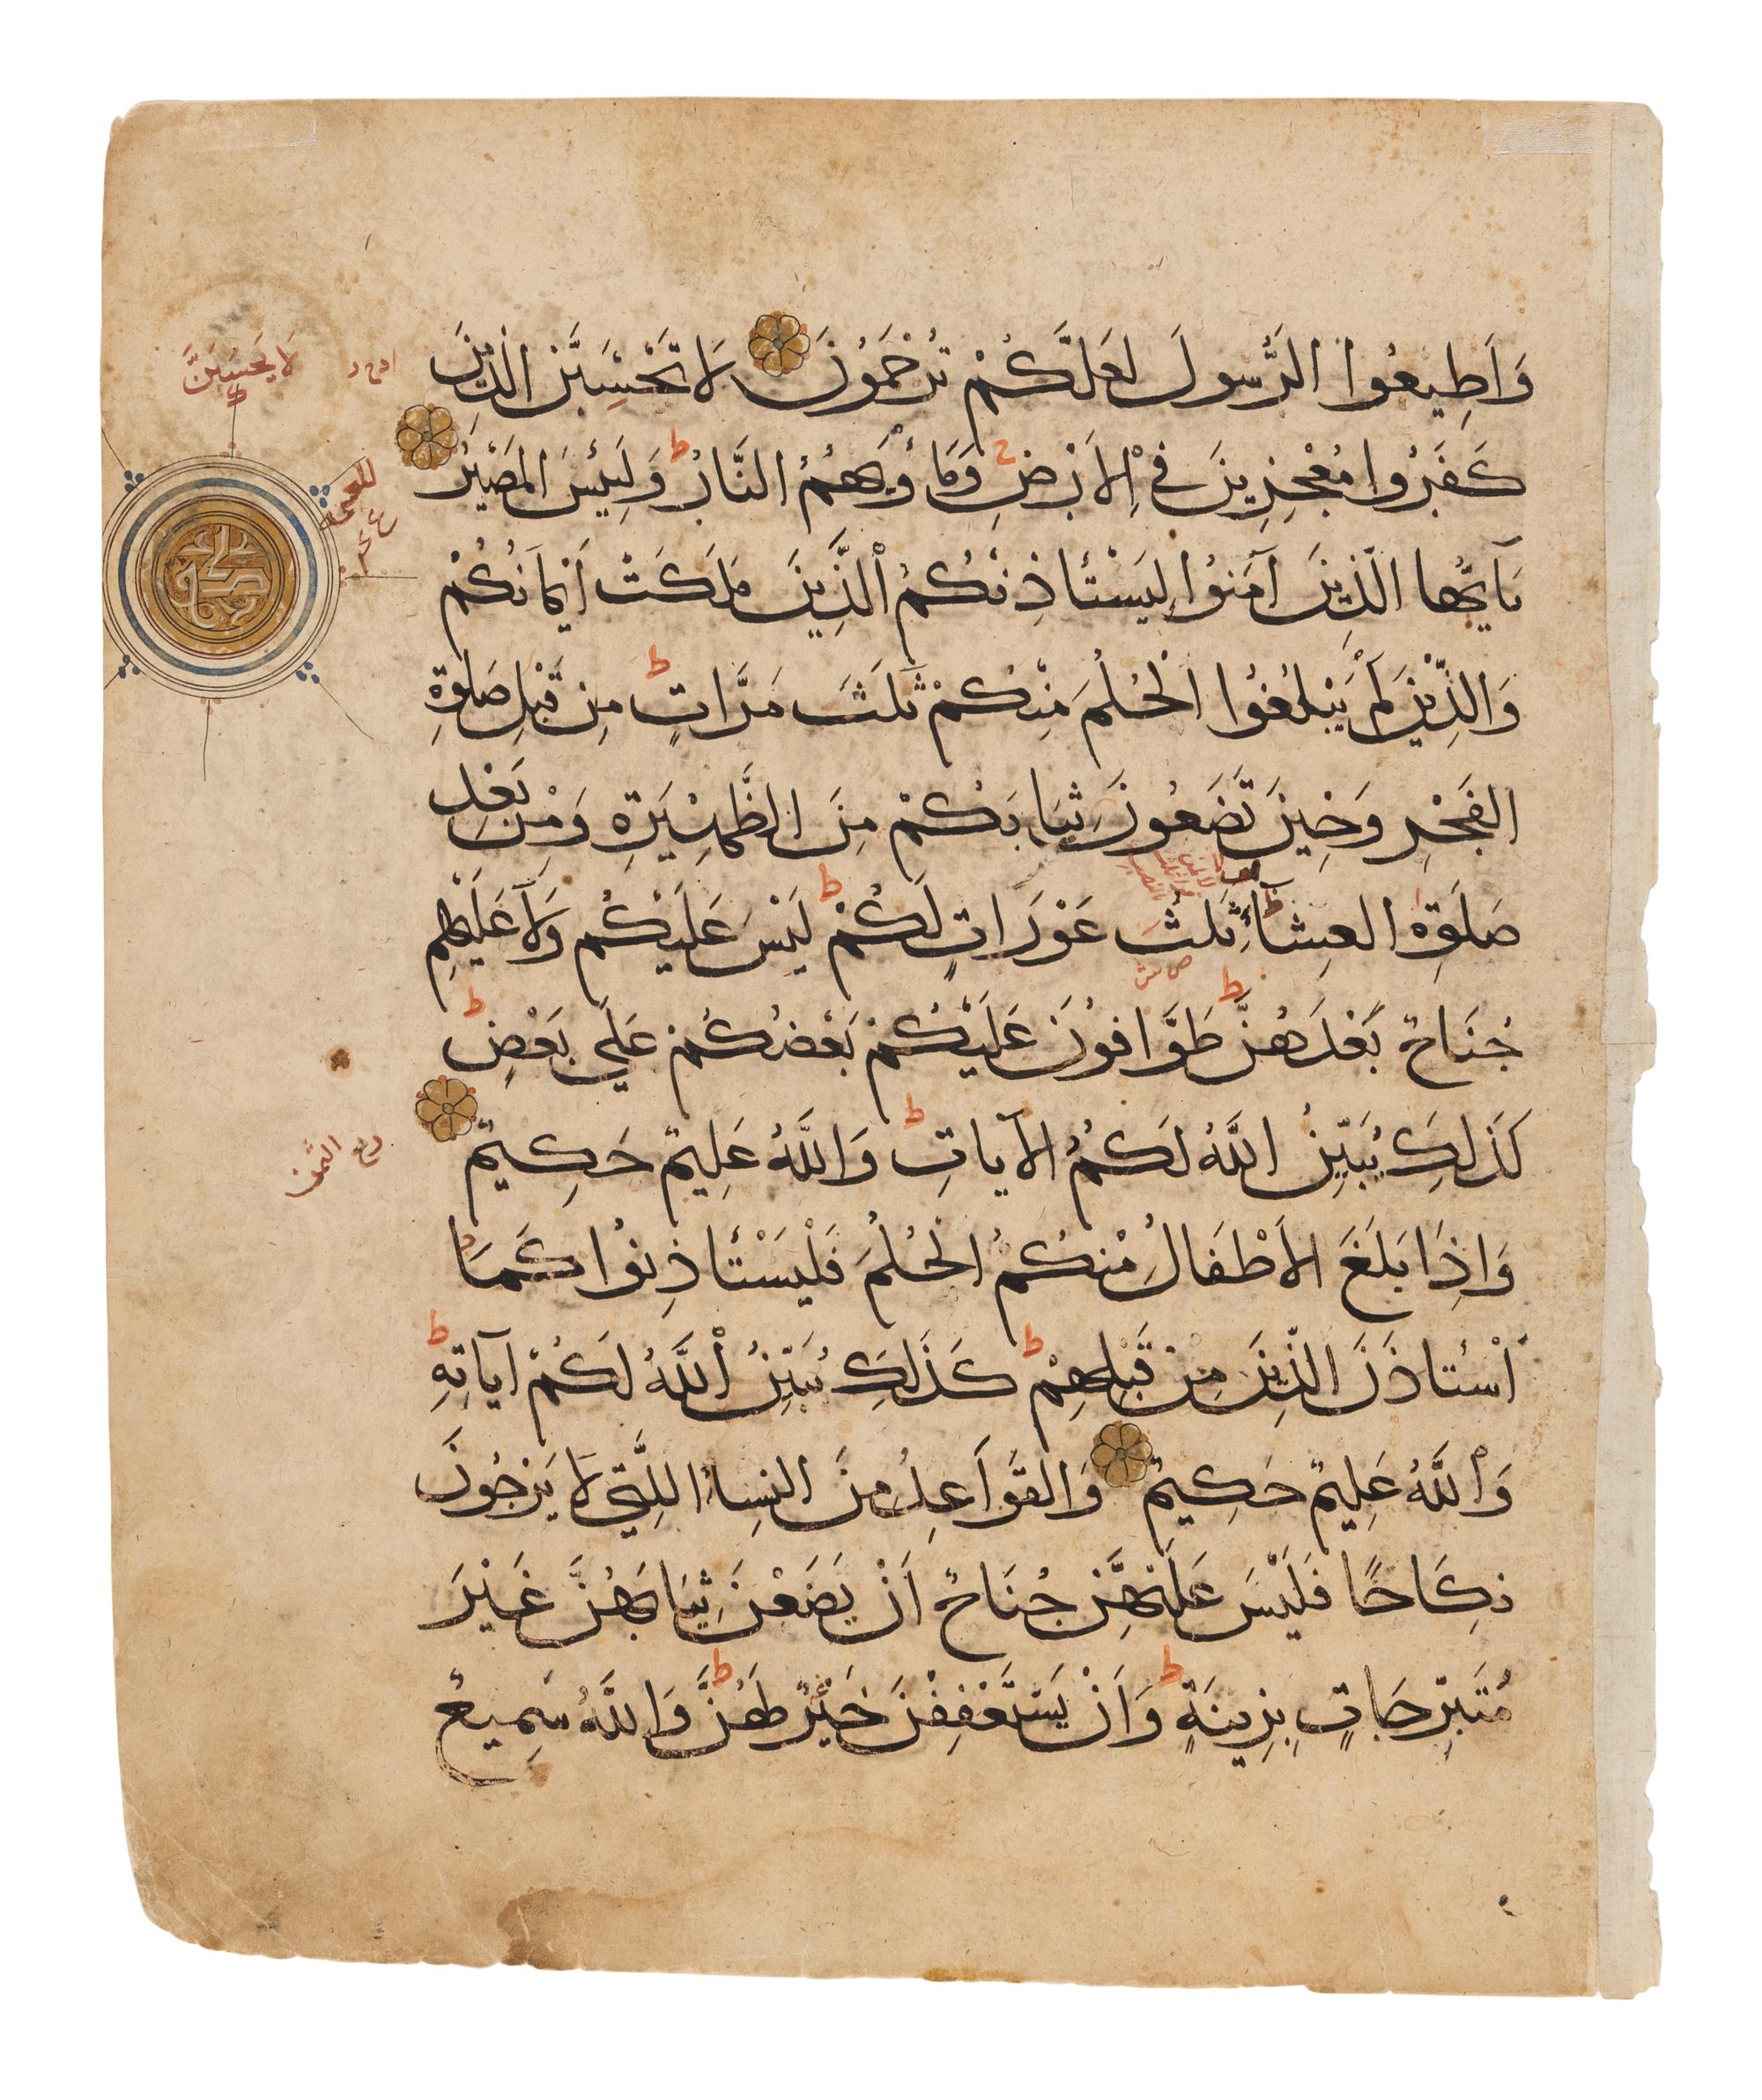 وَأَطِيعُوا الرَّسُولَ لَعَلَّكُمْ تُرْحَمُونَ لَا تَحْسِبَنَّ الَّذِينَ
كَفَرُوا مُعْجِزِينَ فِي الْأَرْضِ وَمَأْوَيهُمُ النَّارُ وَلَبِئْسَ الْمَصِيرُ
يَآيُّهَا الَّذِينَ آمَنُوا لِيَسْتَأْذِنْكُمُ الَّذِينَ مَلَكَتْ أَيْمَانُكُمْ
وَالَّذِينَ لَمْ يَبْلُغُوا الْحُلُمَ مِنْكُمْ ثَلَثَ مَرَّاتٍ مِنْ قَبْلِ صَلَوةِ
الْفَجْرِ وَحِينَ تَضَعُونَ ثِيَابَكُمْ مِنَ الظَّهِيرَةِ وَمِنْ بَعْدِ
صَلَوةِ الْعِشَاءِ ثَلَثُ عَوْرَاتٍ لَكُمْ لَيْسَ عَلَيْكُمْ وَلَا عَلَيْهِمْ
جُنَاحٌ بَعْدَهُنَّ طَوَّافُونَ عَلَيْكُمْ بَعْضُكُمْ عَلَى بَعْضٍ
كَذَلِكَ يُبَيِّنُ اللَّهُ لَكُمُ الْآيَاتِ وَاللَّهُ عَلِيمٌ حَكِيمٌ
وَإِذَا بَلَغَ الْأَطْفَالُ مِنْكُمُ الْحُلُمَ فَلْيَسْتَأْذِنُوا كَمَا
اسْتَأْذَنَ الَّذِينَ مِنْ قَبْلِهِمْ كَذَلِكَ يُبَيِّنُ اللَّهُ لَكُمْ آيَاتِهِ
وَاللَّهُ عَلِيمٌ حَكِيمٌ وَالْقَوَاعِدُ مِنَ النِّسَاءِ اللَّتِي لَا يَرْجُونَ
نِكَاحًا فَلَيْسَ عَلَيْهِنَّ جُنَاحٌ أَنْ يَضَعْنَ ثِيَابَهُنَّ غَيْرَ
مُتَبَرِّجَاتٍ بِزِينَةٍ وَأَنْ يَسْتَعْفِفْنَ خَيْرٌ لَهُنَّ وَاللَّهُ سَمِيعٌ
لَا يَحْسَبَنَّ